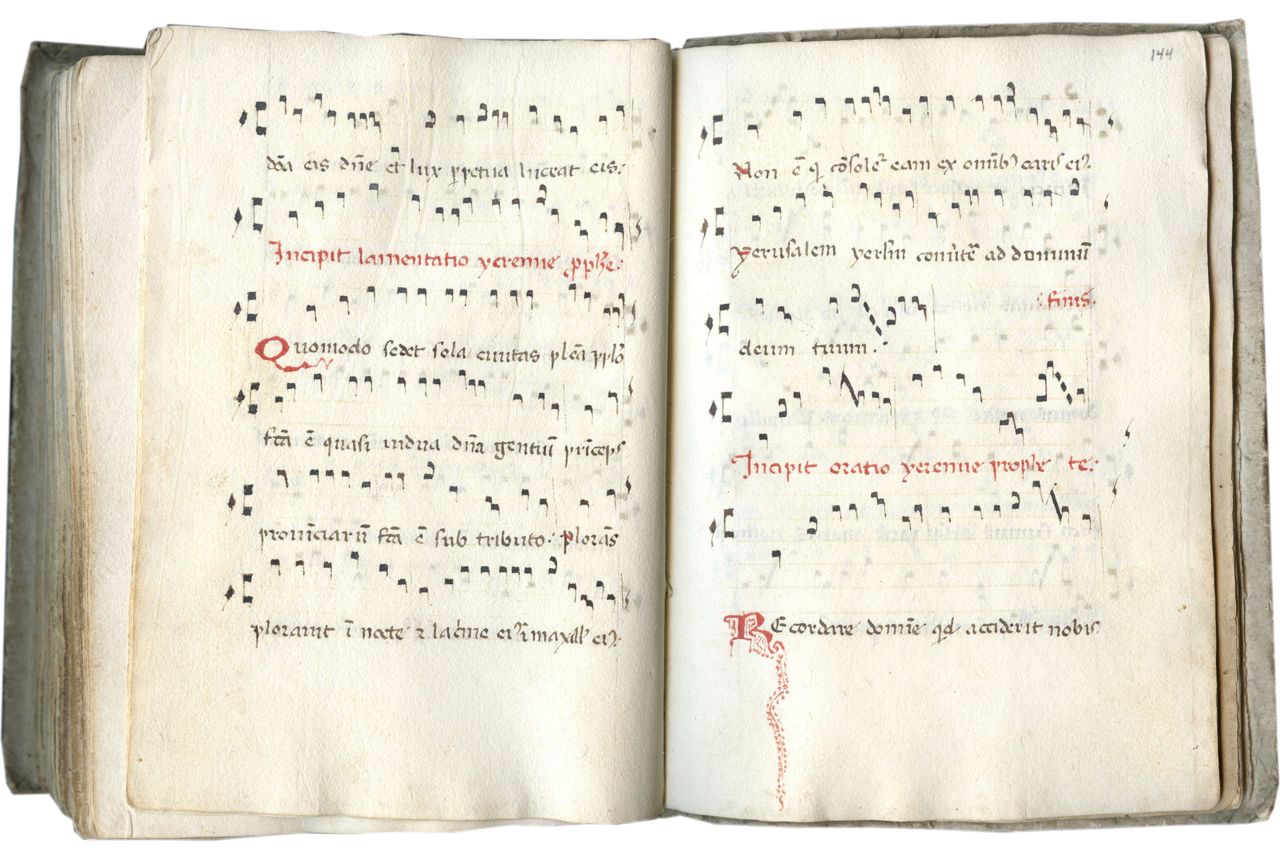 dōa eis dn̄e et lux ꝑpetua luceat eis.
Incipit lamentatio yeremie ꝓph̄e.
Quomodo sedet sola ciuitas plēa pplō
fc̄a ē quasi uidua dn̄a gentiū prīceps
prouīciarū fc̄a ē sub tributo. plorās
plorauit ī nocte ⁊ lac̄me ei⁹ ī maxill' ei⁹.
144
Non ē q̄ cōsoleť eam ex omīb⁹ caris ei⁹.
Yerusalem yerłm conūte ad dominum
finis.
deum tuum.
Incipit oratio yeremie prophe te.
REcordare domīe qd acciderit nobis